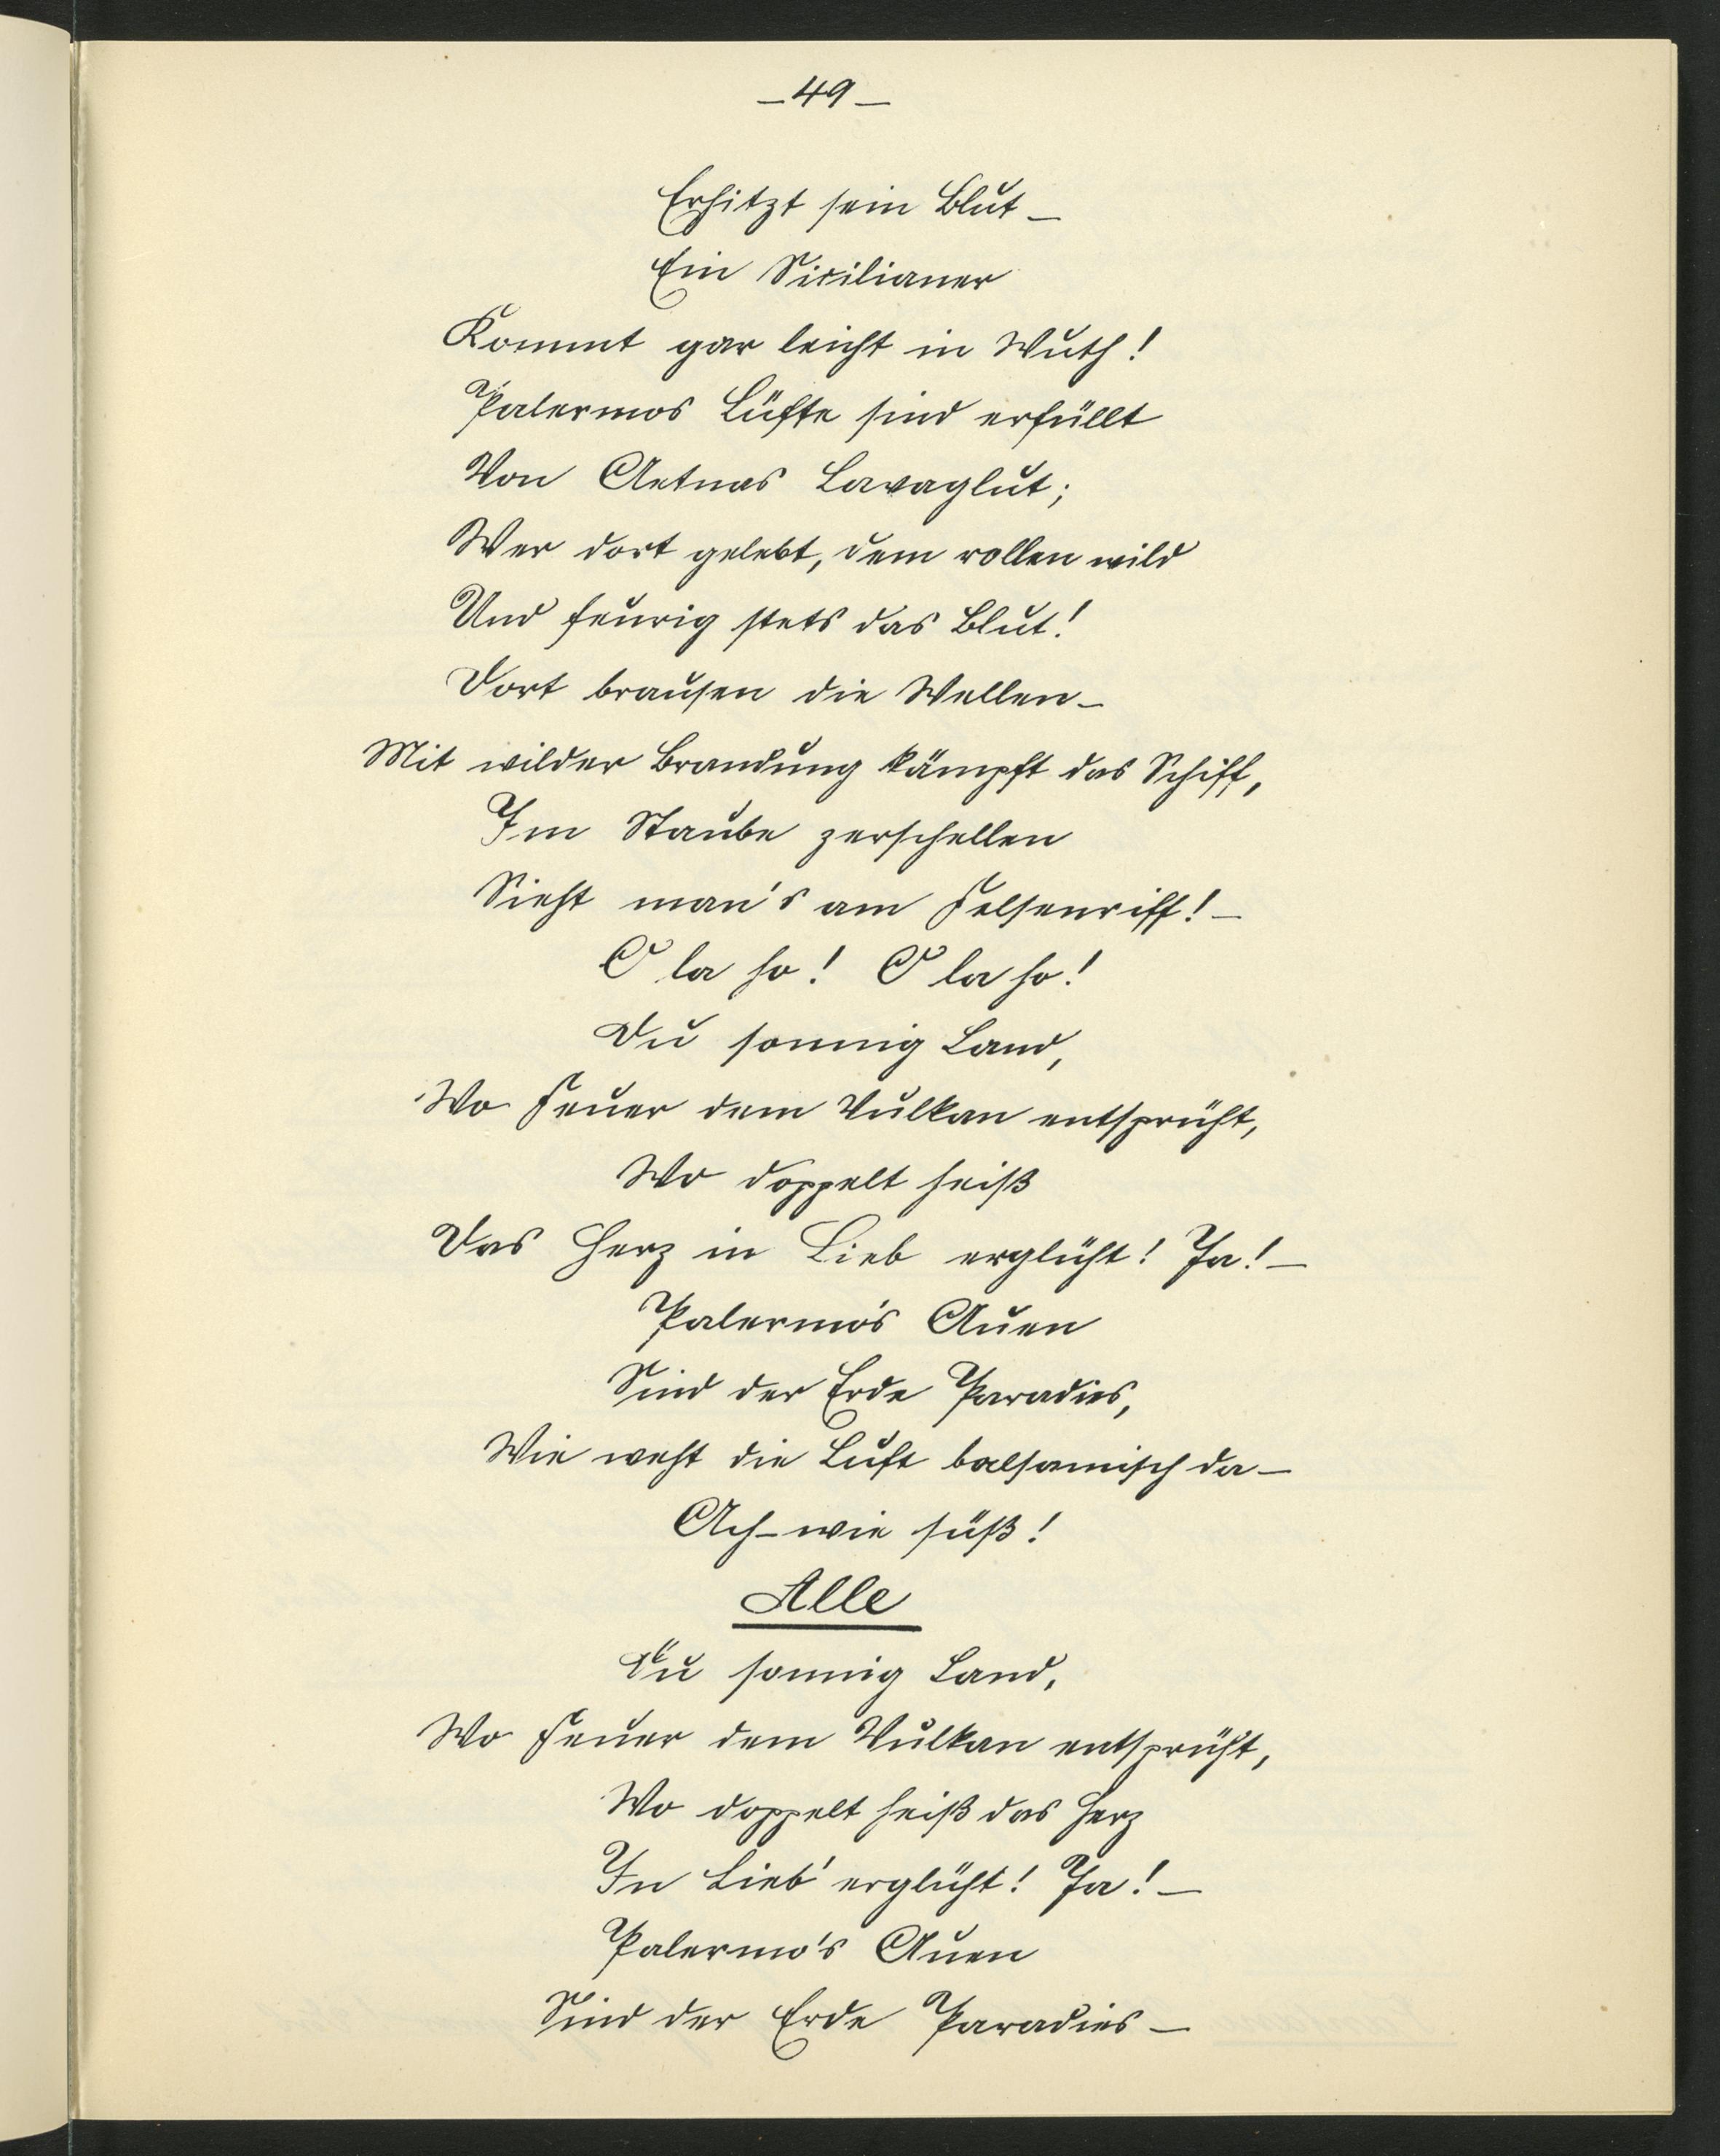 – 49 –
Erhitzt sein Blut –
Ein Sicilianer
Kommt gar leicht in Wuth!
Palermos Lüfte sind erfüllt
Von Aetnas Lavaglut;
Wer dort gelebt, dem rollen wild
Und feurig stets das Blut!
Dort brausen die Wellen –
Mit wilder Brandung kämpft das Schiff,
Im Staube zerschellen
Sieht man's am Felsenriff! –
O la ho! O la ho!
Du sonnig Land,
Wo Feuer dem Vulkan entsprüht,
Wo doppelt heiß
Das Herz in Lieb erglüht! Ja! –
Palermo's Auen
Sind der Erde Paradies,
Wie weht die Luft balsamisch da –
Ach – wie süß!
Alle
Du sonnig Land,
Wo Feuer dem Vulkan entsprüht,
Wo doppelt heiß das Herz
In Lieb' erglüht! Ja! –
Palermo's Auen
Sind der Erde Paradies –